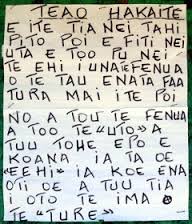 TEAO HAKAITE
E ITE TIA NEI TAHI
PITO POI E FITI NEI
UTA E TOO PU NEI
TE EHI IUNA "FENUA
O TE TAU ENATA PAA
TURA MAI ITE POI
NO A TOU TE FENUA
A TOO TE "UTO" A
TUU TOHE EPO E
KOANA IA TA OE
"EEHI" IA KOE ENA
OTI OE A TUU TIA
OTO TE IMA
TE "TURE"